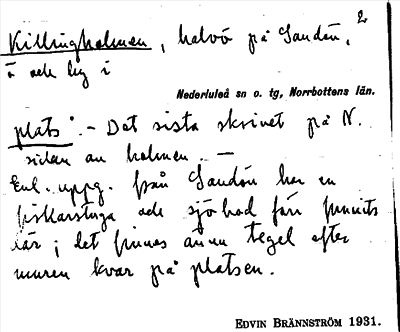 Killingholmen, halvö på Sandön, 2
ö och by i
Nederluleå sn o. tg, Norrbottens län.
plats". - Det sista skrivet på N.
sidan av holmen. -
Enl. uppg. från Sandön har en
fiskarstuga och sjöbod förr funnits
där; det finnes ännu tegel efter
muren kvar på platsen.
EDVIN BRÄNNSTRÖM 1931.